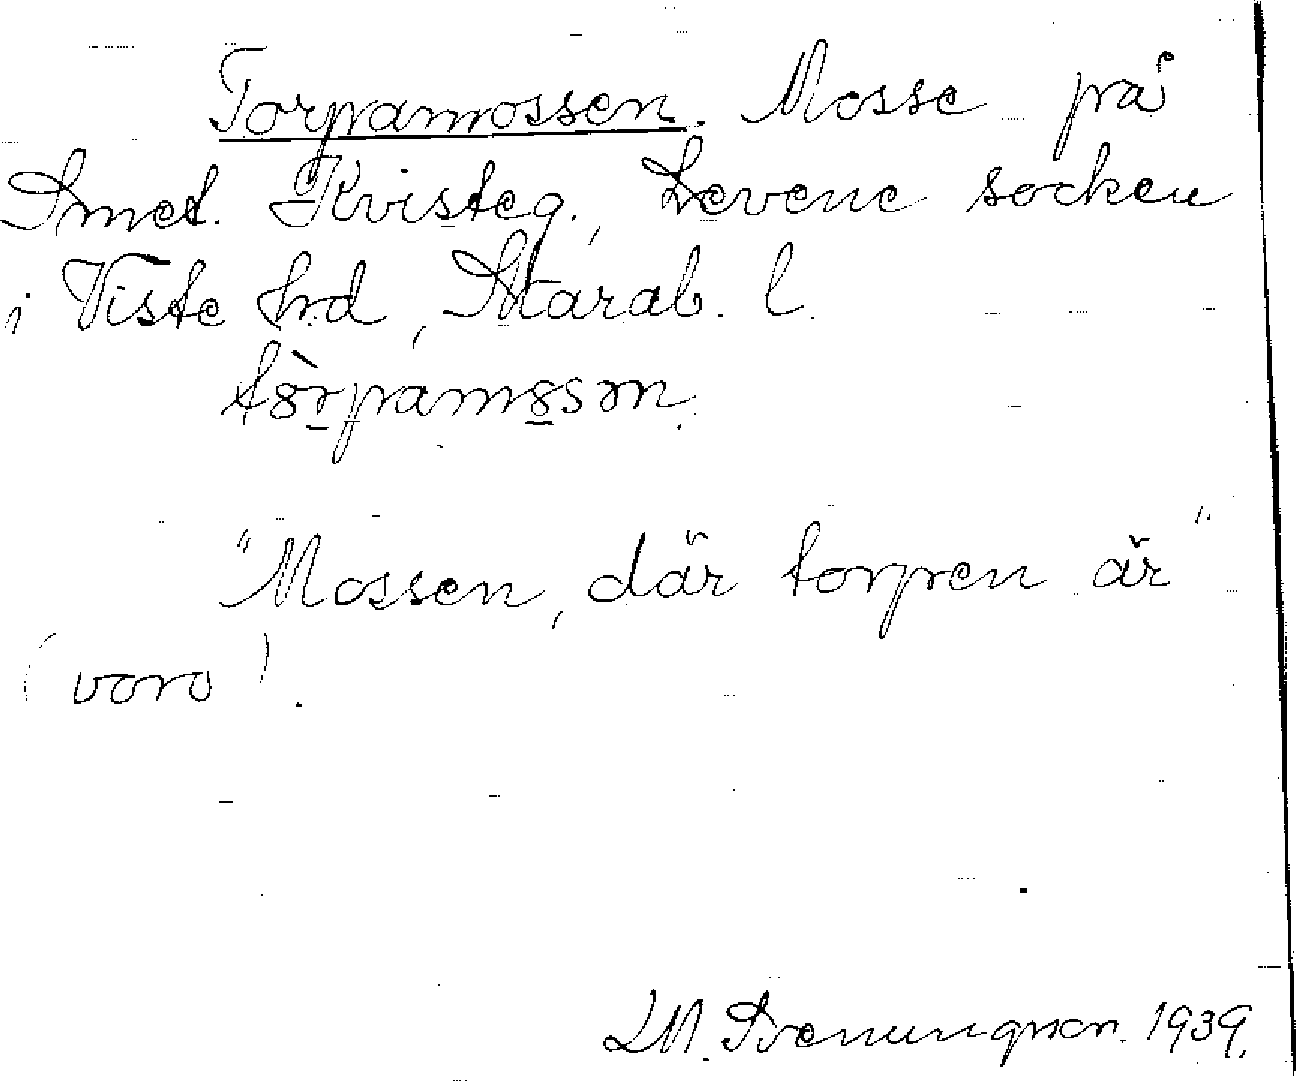 Torpamossen. Mosse på
Smet. Kvisteg., Levene socken
i Viste hd, Skarab. l.
tòrpamosən.
"Mossen, där torpen är"
(voro).
1939.